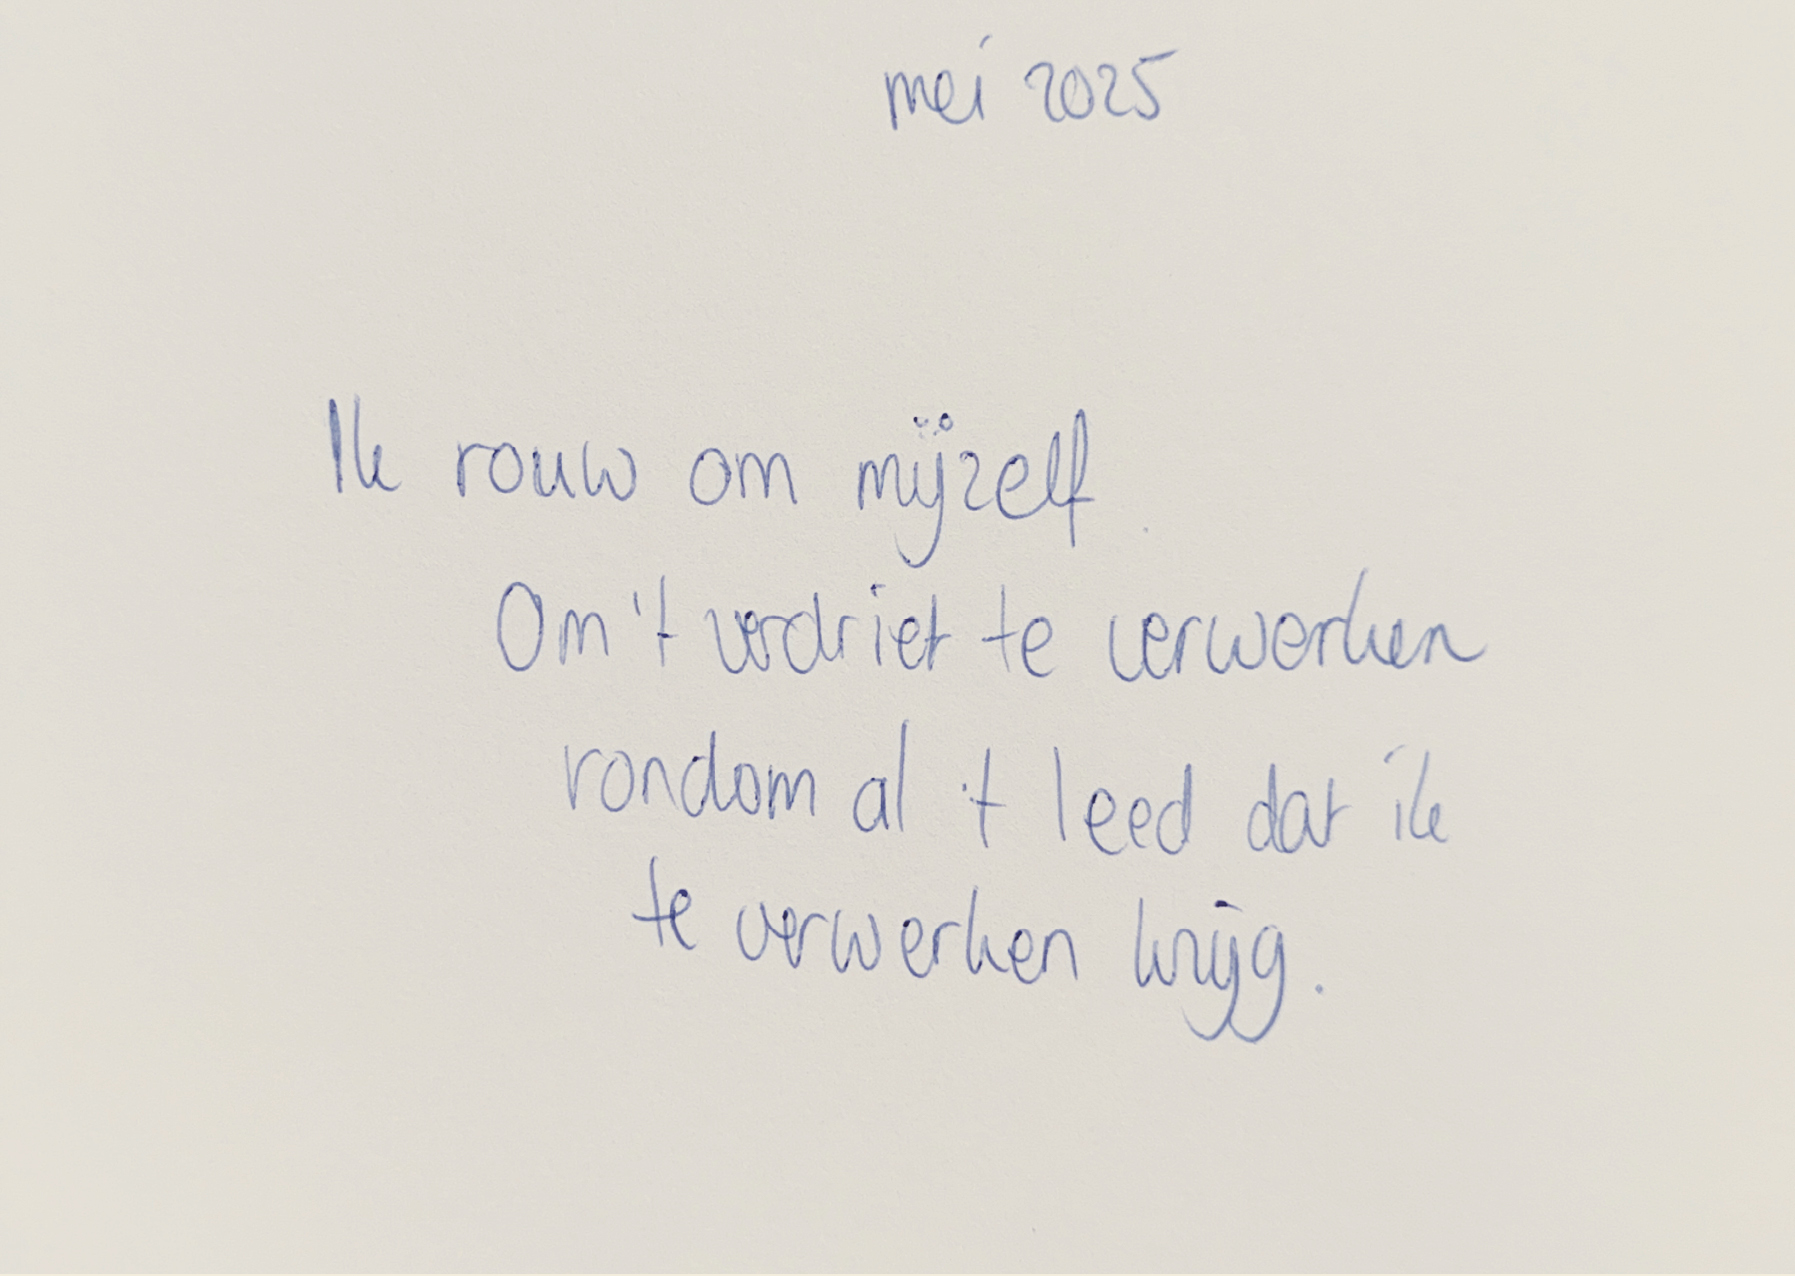 mei 2025
Ik rouw om mijzelf.
Om 't verdriet te verwerken
rondom al 't leed dat ik
te verwerken krijg.